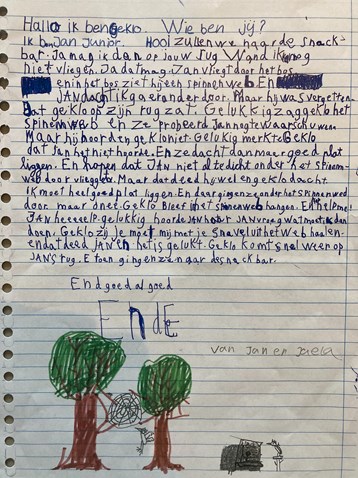 Hallo ik ben geklo. Wie ben jij?
Ik ben Jan Junior. Hooi zullen we naar de snack-
bar. Ja mag ik dan op jouw rug Wand ik nog
niet vliegen. Ja dat mag. Jan vliegt door het bos
en in het bos ziet hij een spinnenweb En
JAN dacht ik ga er onder door. Maar hij was vergetten
dat geklo op zijn rug zat. Gelukkig zag geklo het
spinnenweb en ze probeerd Jan nog te waarschuwen
Maar hij hoorde geklo niet. Gelukig merkte Geklo
dat Jan het niet hoorde. En ze dacht dan maar goed plat
liggen. En hopen dat JAN niet al te dicht onder het spinnen-
web door vliegt. Maar dat deed hij wel en geklo dacht
ik moet heel goed plat liggen. En daar gingen ze onder het spinnenweb
door. maar o nee! Geklo bleef in het spinnenweb hangen. En help me!
JAN heeeeelp. gelukkig hoorde JAN haar JAN vroeg wat moet ik dan
doen. Geklo zij Je moet mij met je snavel uit het web haalen.
en dat deed JAN en het is gelukt. Geklo komt snel weer op
JANS rug. En toen gingen ze naar de snackbar.
End goed al goed
Ende
van Jan en Jaela